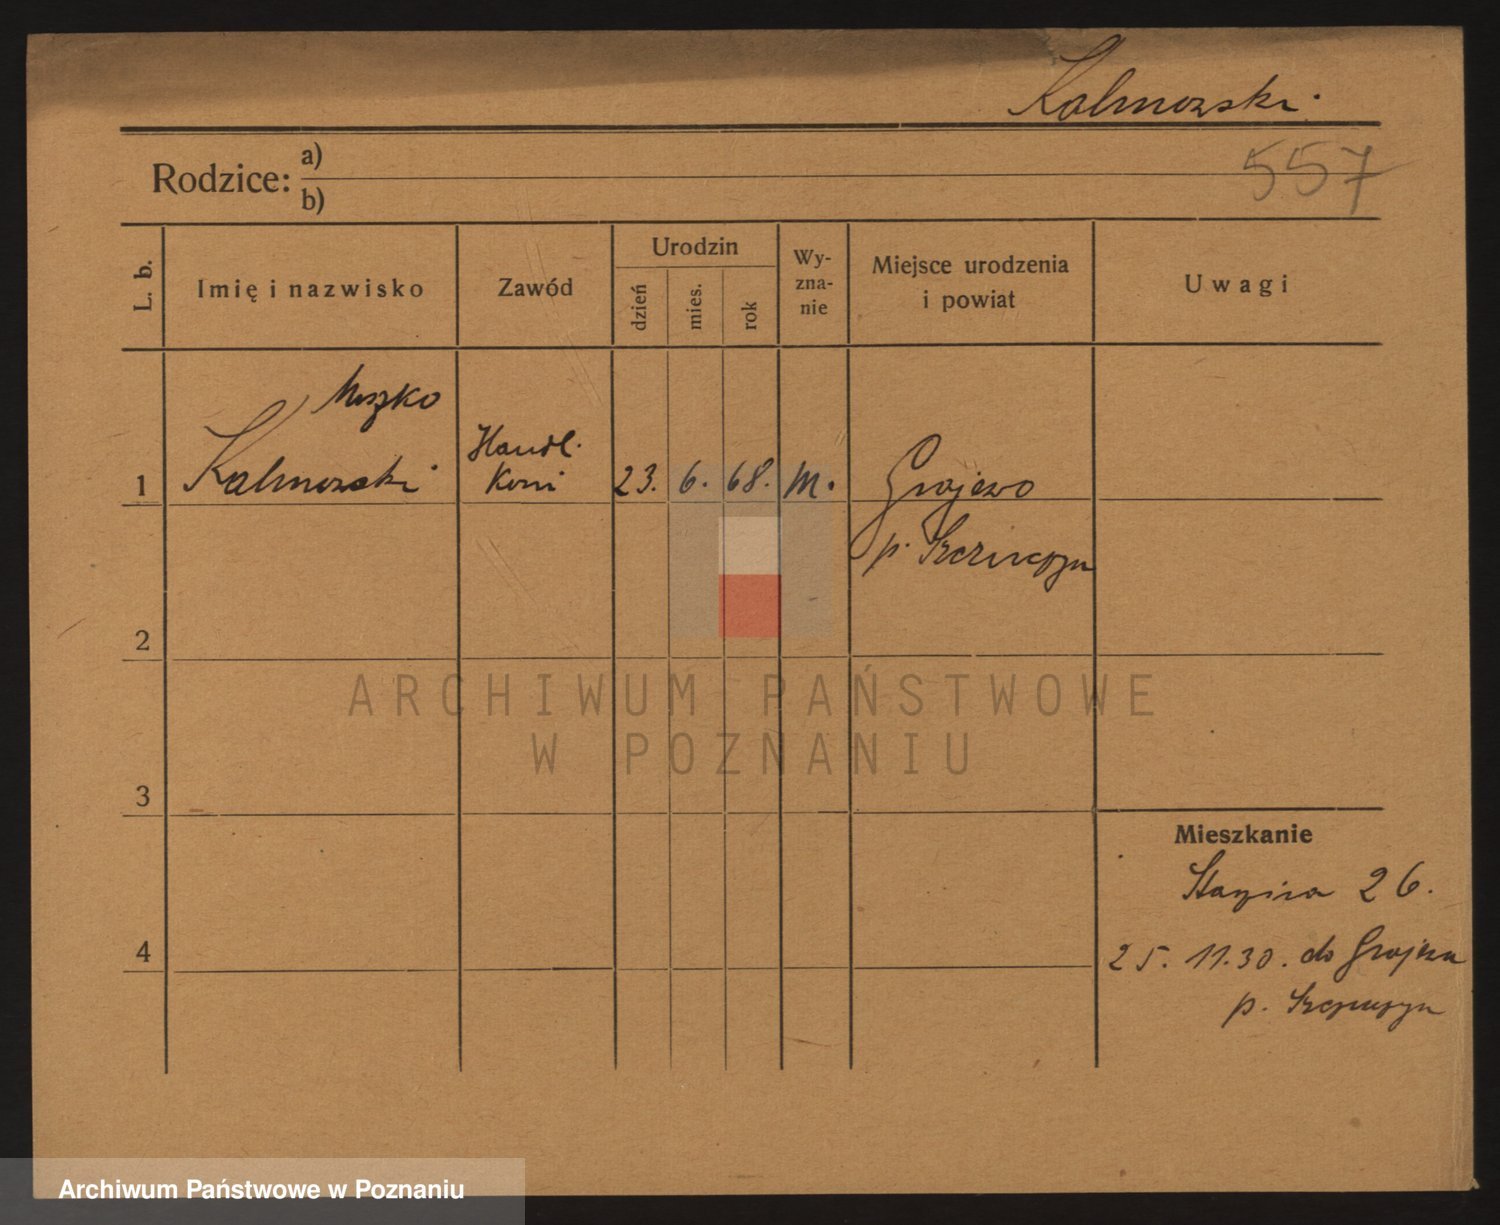 Kalmowski.
Rodzice: a)
b)
557
L. b.
Imię i nazwisko
Zawód
Urodzin
dzień
mies.
rok
Wy-
zna-
nie
Miejsce urodzenia
i powiat
Uwagi
Moszko
1 Kalmowski
Handl.
Koni
23. 6. 68. M.
Grajewo
p. Szczuczyn
2
3
4
Mieszkanie
26.
25. 11.30. do Grajewa
p. Szczuczyn
ARCHIWUM PAŃSTWOWE
W POZNANIU
Archiwum Państwowe w Poznaniu